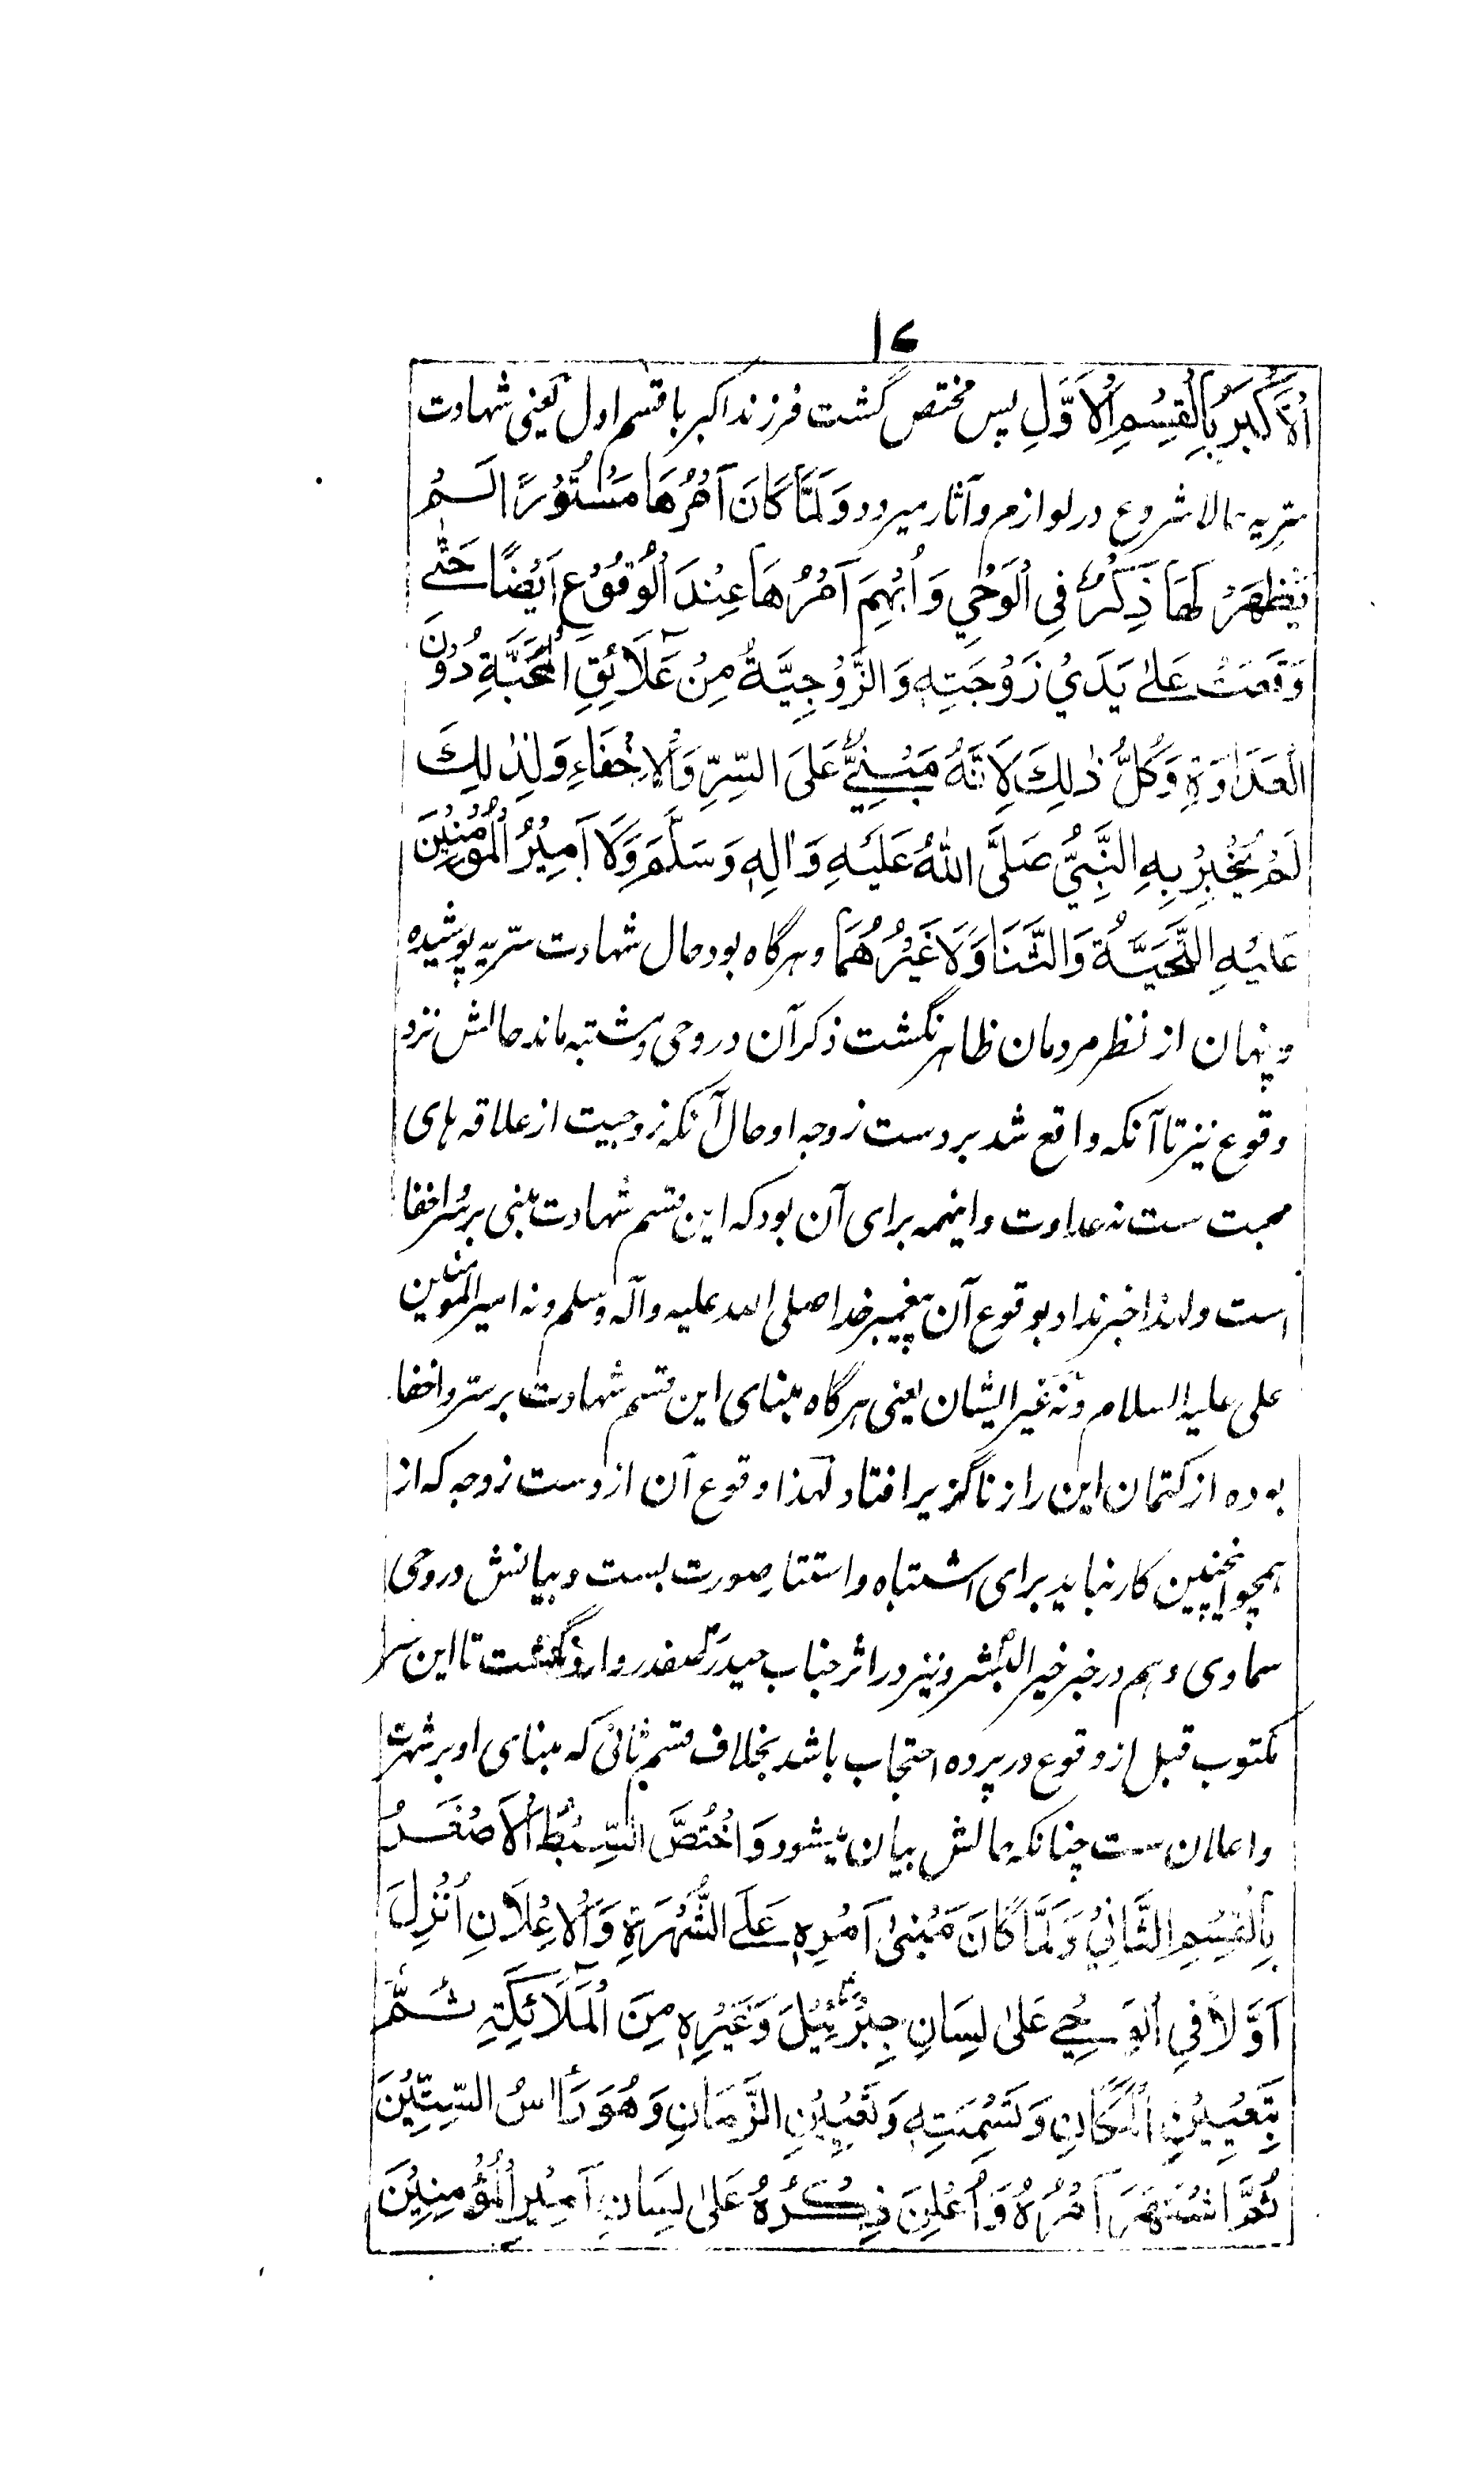 ۱۷
اَلْاَكْبَرُ بِالْقِسْمِ الْاَوَّلِ پس مختص گشت فرزند اکبر با قسم اول یعنی شهادت
سریه حالا شروع در لوازم و آثار میرود وَلَمَّا كَانَ اَمْرُهَا مَسْتُوْرًا لَمْ
يَظْهَرْ لَهَا ذِكْرٌ فِي الْوَحْيِ وَاُبْهِمَ اَمْرُهَا عِنْدَ الْوُقُوْعِ اَيْضًا حَتّٰى
وَقَعَتْ عَلٰى يَدَيْ زَوْجَتِهٖ وَالزَّوْجِيَّةُ مِنْ عَلَائِقِ الْمَحَبَّةِ دُوْنَ
الْعَدَاوَةِ وَكُلُّ ذٰلِكَ لِاَنَّهُ مَبْنِيٌّ عَلَى السِّرِّ وَالْاِخْفَاءِ وَلِذٰلِكَ
لَمْ يُخْبِرْ بِهِ النَّبِيُّ صَلَّى اللهُ عَلَيْهِ وَاٰلِهٖ وَسَلَّمَ وَلَا اَمِيْرُ الْمُؤْمِنِيْنَ
عَلَيْهِ التَّحِيَّةُ وَالثَّنَا وَلَا غَيْرُهُمَا و هرگاه بود حال شهادت سریه پوشیده
و پنهان از نظر مردمان ظاهر نگشت ذکر آن در وحی و مشتبه ماند حالش نزد
وقوع نیز تا آنکه واقع شد بر دست زوجه او حال آنکه زوجیت از علاقه های
محبت ست نه عداوت و اینهمه برای آن بود که این قسم شهادت مبنی بر سر و اخفا
است و لهذا خبر نداد بوقوع آن پیغمبر خدا صلی الله علیه وآله وسلم و نه امیر المومنین
علی علیه السلام و نه غیر ایشان یعنی هرگاه مبنای این قسم شهادت بر ستر و اخفا
بوده از کتمان این راز ناگزیر افتاد لهذا وقوع آن از دست زوجه که از
همچو اینچنین کار نباید برای اشتباه و استتار صورت بست و بیانش در وحی
سماوی و هم در خبر خیر البشر و نیز در اثر جناب حیدر صفدر وارد نگشت تا این سر
مکتوب قبل از وقوع در پرده احتجاب باشد بخلاف قسم ثانی که مبنای او بر شهرت
و اعلان ست چنانکه حالش بیان میشود وَاخْتُصَّ السِّبْطُ الْاَصْغَرُ
بِالْقِسْمِ الثَّانِيْ وَلَمَّا كَانَ مَبْنٰى اَمْرِهٖ عَلَى الشُّهْرَةِ وَالْاِعْلَانِ اُنْزِلَ
اَوَّلًا فِي الْوَحْيِ عَلٰى لِسَانِ جِبْرَئِيْلَ وَغَيْرِهٖ مِنَ الْمَلَائِكَةِ ثُمَّ
بِتَعْيِيْنِ الْمَكَانِ وَتَسْمِيَتِهٖ وَتَعْيِيْنِ الزَّمَانِ وَهُوَ رَأْسُ السِّتِّيْنَ
ثُمَّ اشْتَهَرَ اَمْرُهُ وَاُعْلِنَ ذِكْرُهُ عَلٰى لِسَانِ اَمِيْرِ الْمُؤْمِنِيْنَ